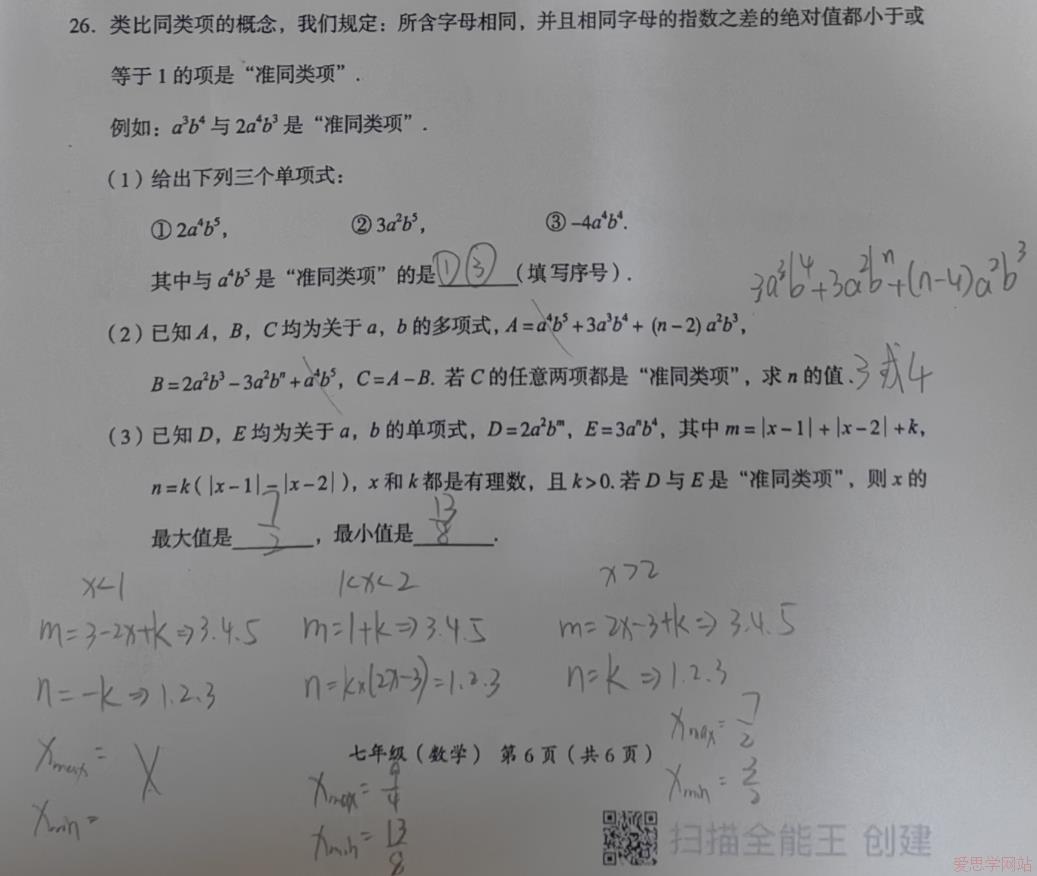 26. 类比同类项的概念，我们规定：所含字母相同，并且相同字母的指数之差的绝对值都小于或
等于1的项是“准同类项”.
例如：a³b⁴与2a⁴b³是“准同类项”.
（1）给出下列三个单项式：
①2a⁴b⁵， ②3a²b⁵， ③-4a⁴b⁴.
其中与a⁴b⁵是“准同类项”的是①③（填写序号）.
3a³b⁴+3a²bⁿ+(n-4)a²b³
（2）已知A，B，C均为关于a，b的多项式，A=a⁴b⁵+3a³b⁴+(n-2)a²b³，
B=2a²b³-3a²bⁿ+a⁴b⁵，C=A-B. 若C的任意两项都是“准同类项”，求n的值. 3或4
（3）已知D，E均为关于a，b的单项式，D=2a²bᵐ，E=3aⁿb⁴，其中m=|x-1|+|x-2|+k，
n=k(|x-1|-|x-2|)，x和k都是有理数，且k>0. 若D与E是“准同类项”，则x的
最大值是 7/2 ，最小值是 13/8 .
x<1 1<x<2 x>2
m=3-2x+k⇒3.4.5 m=1+k⇒3.4.5 m=2x-3+k⇒3.4.5
n=-k⇒1.2.3 n=k×(2x-3)=1.2.3 n=k⇒1.2.3
xmax= xmax=7/2
七年级（数学） 第6页（共6页）
xmin= xmax=9/4 xmin=3/2
xmin=13/8
扫描全能王 创建
爱思学网站